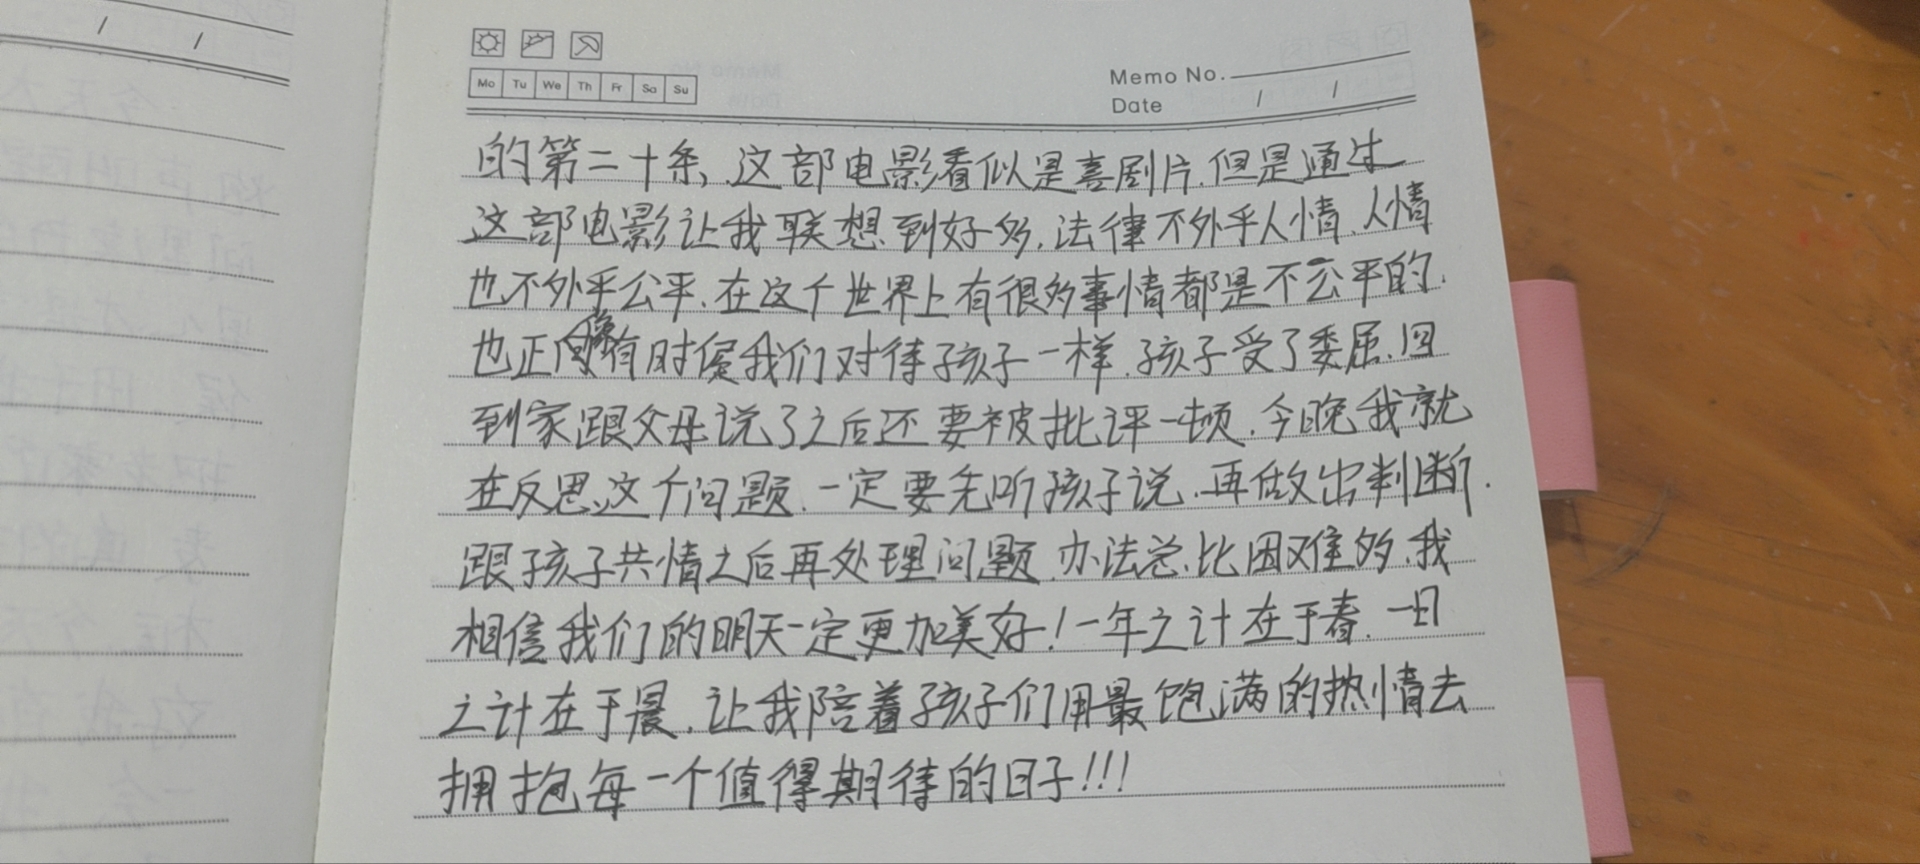 Mo Tu We Th Fr Sa Su
Memo No.
Date / /
的第二十条,这部电影看似是喜剧片,但是通过
这部电影让我联想到好多,法律不外乎人情,人情
也不外乎公平,在这个世界上有很多事情都是不公平的.
也正像有时候我们对待孩子一样,孩子受了委屈,回
到家跟父母说了之后还要被批评一顿,今晚我就
在反思这个问题,一定要先听孩子说,再做出判断.
跟孩子共情之后再处理问题,办法总比困难多,我
相信我们的明天一定更加美好!一年之计在于春,一日
之计在于晨,让我陪着孩子们用最饱满的热情去
拥抱每一个值得期待的日子!!!